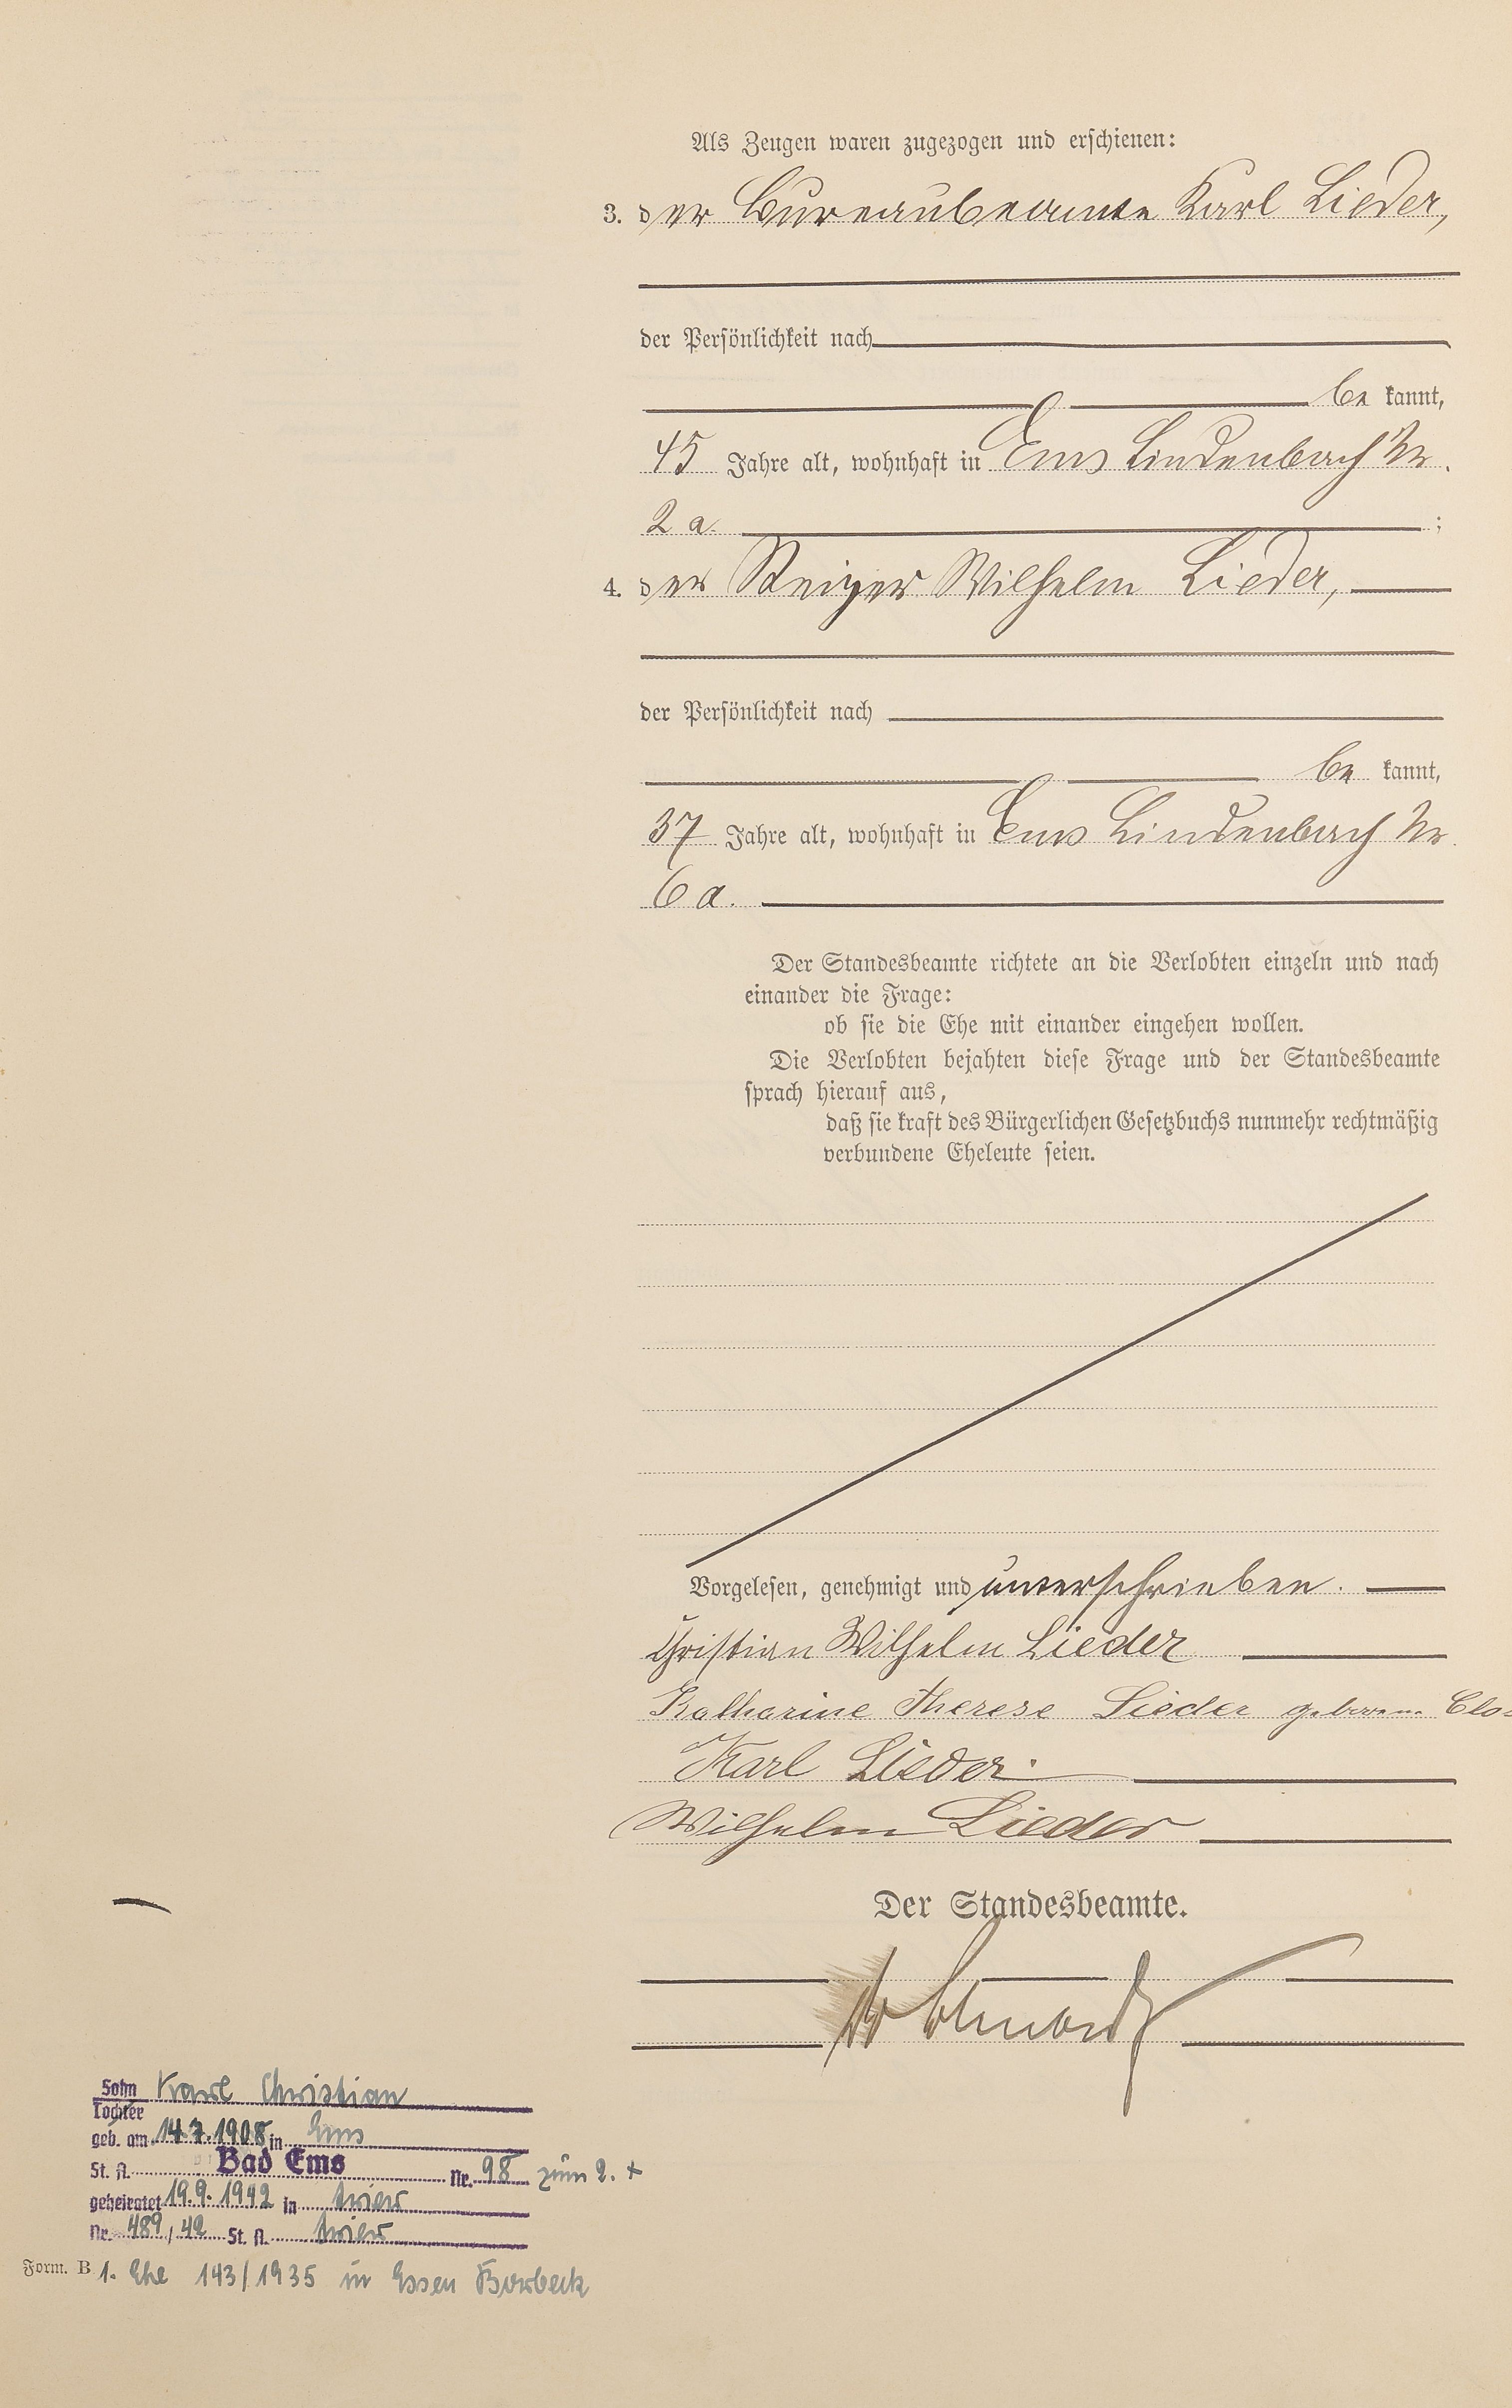 Als Zeugen waren zugezogen und erschienen:
3. der Bureaubeamte Karl Lieder,
der Persönlichkeit nach
be kannt,
45 Jahre alt, wohnhaft in Ems Lindenbach Nr.
2 a. ;
4. der Steiger Wilhelm Lieder,
der Persönlichkeit nach
be kannt,
37 Jahre alt, wohnhaft in Ems Lindenbach Nr
6 a.
Der Standesbeamte richtete an die Verlobten einzeln und nach
einander die Frage:
ob sie die Ehe mit einander eingehen wollen.
Die Verlobten bejahten diese Frage und der Standesbeamte
sprach hierauf aus,
daß sie kraft des Bürgerlichen Gesetzbuchs nunmehr rechtmäßig
verbundene Eheleute seien.
Vorgelesen, genehmigt und unterschrieben.
Christian Wilhelm Lieder
Katharine Therese Lieder geborene
Karl Lieder
Wilhelm Lieder
Der Standesbeamte.
Sohn Karl Christian
Tochter
geb. am 14.7.1908 in Ems
St. A. Bad Ems Nr. 98 zum 2. x
geheiratet 19.9.1942 in Trier
Nr. 489/42 St. A. Trier
Form. B 1. Ehe 143/1935 in Essen Borbeck